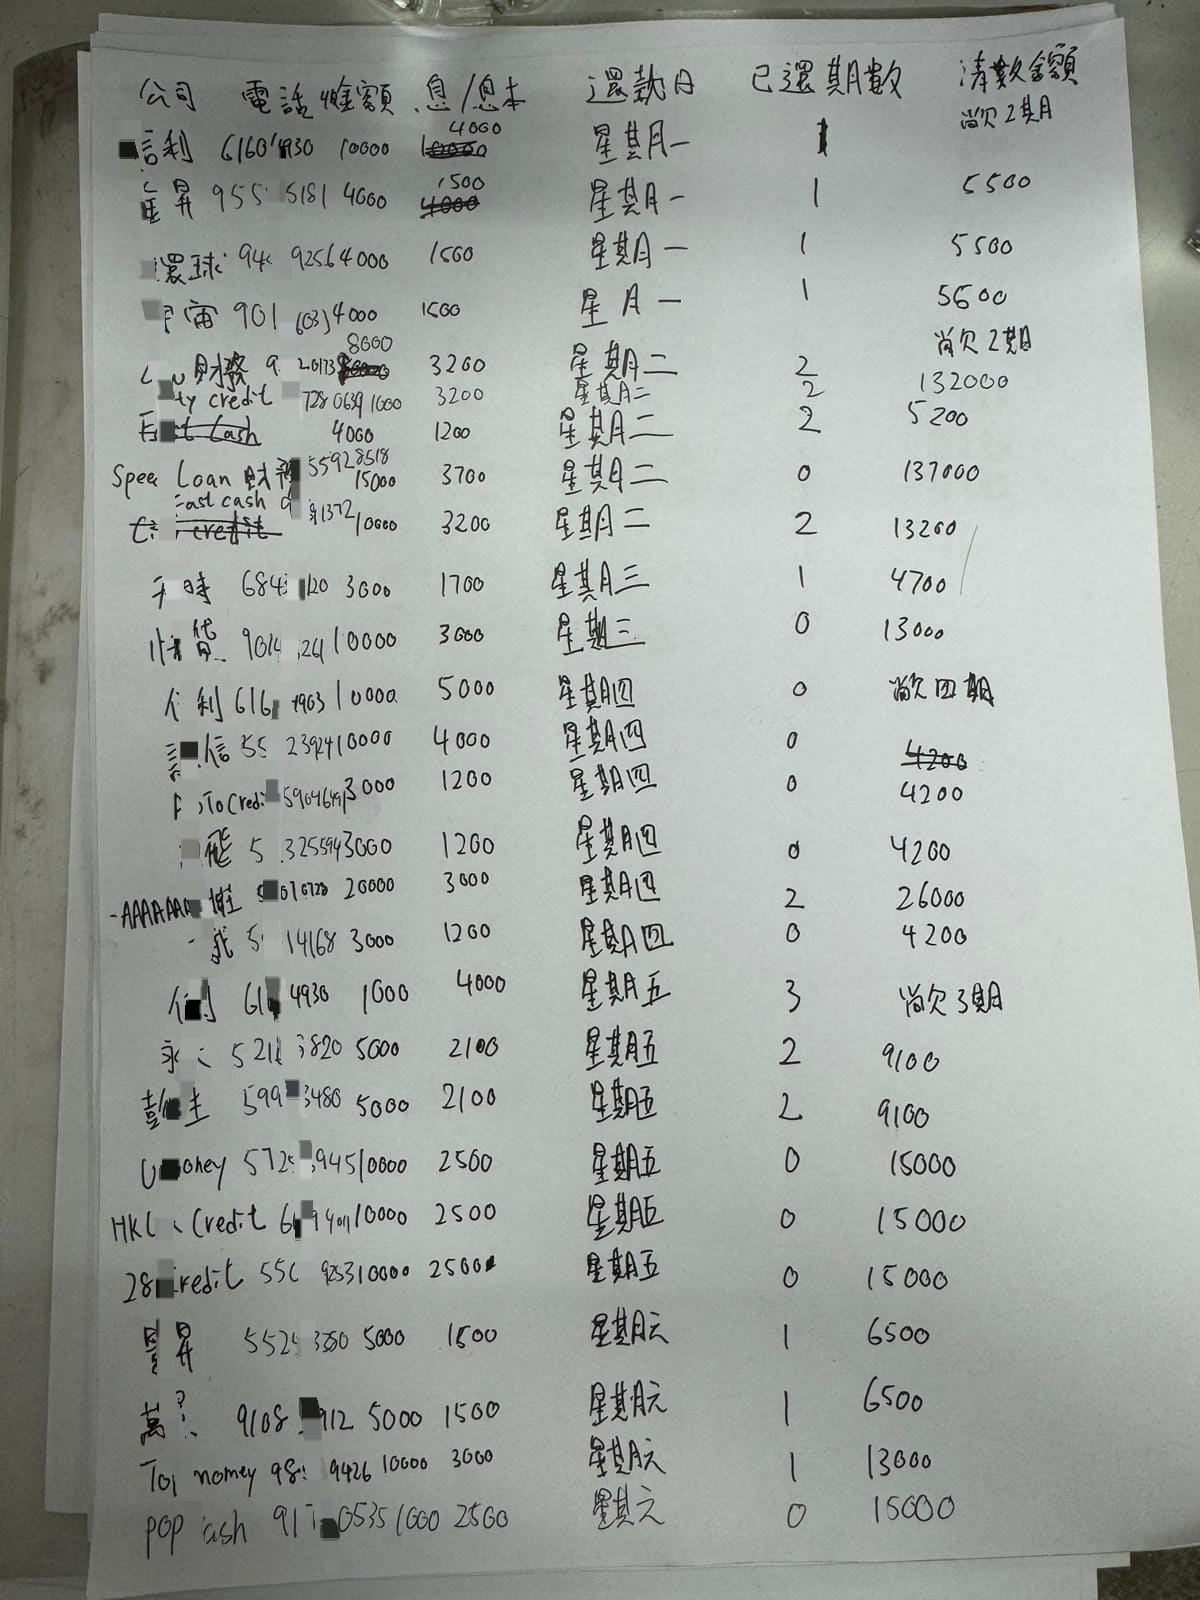 公司 電話 金額 息/息本 還款日 已還期數 清數金額
利 6160 930 10000 4000 星期一 1 尚欠2期
昇 955 5181 4000 1500 星期一 1 5500
環球 94 9256 4000 1500 星期一 1 5500
宙 901 6033 4000 1500 星月一 1 5500
財務 9 20173 8000 3200 星期二 2 尚欠2期
ty credit 7280639 1000 3200 星期二 2 132000
Cash 4000 1200 星期二 2 5200
Spee Loan 財務 55928518 15000 3700 星期二 0 137000
Fast cash 9 1372 10000 3200 星期二 2 13200
credit
時 684 120 3000 1700 星期三 1 4700
貸 9014 261 10000 3000 星期三 0 13000
利 616 4903 10000 5000 星期四 0 尚欠四期
信 55 2392 10000 4000 星期四 0 4200
ToCredi 5904649 3000 1200 星期四 0 4200
飛 5 325594 3000 1200 星期四 0 4200
-AAAAAA 5 070728 20000 3000 星期四 2 26000
5 14168 3000 1200 星期四 0 4200
61 4930 1000 4000 星期五 3 尚欠3期
永 521 3820 5000 2100 星期五 2 9100
彭 生 599 3480 5000 2100 星期五 2 9100
U oney 572 945 10000 2500 星期五 0 15000
HK Credit 6 9401 10000 2500 星期五 0 15000
28 redit 550 9253 10000 25000 星期五 0 15000
昇 552 3380 5000 1500 星期六 1 6500
萬 9108 912 5000 1500 星期六 1 6500
Top nomey 98 9426 10000 3000 星期六 1 13000
pop ash 91 0535 1000 2500 星期六 0 15000